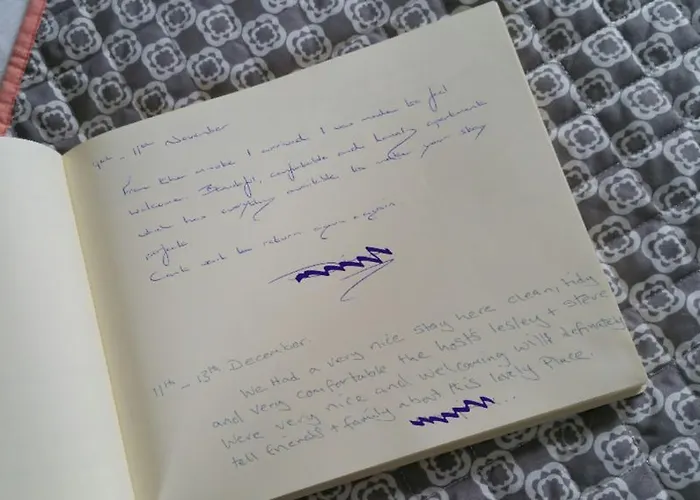 9th - 11th November
From the minute I arrived I was made to feel
welcome. Beautiful, comfortable and homely apartments
which has everything available to make your stay
perfect.
Can't wait to return again & again
11th - 13th December.
We Had a very nice stay here clean, tidy
and very comfortable the hosts lesley + steve
Were very nice and welcoming will definitely
tell friends + family about this lovely Place.